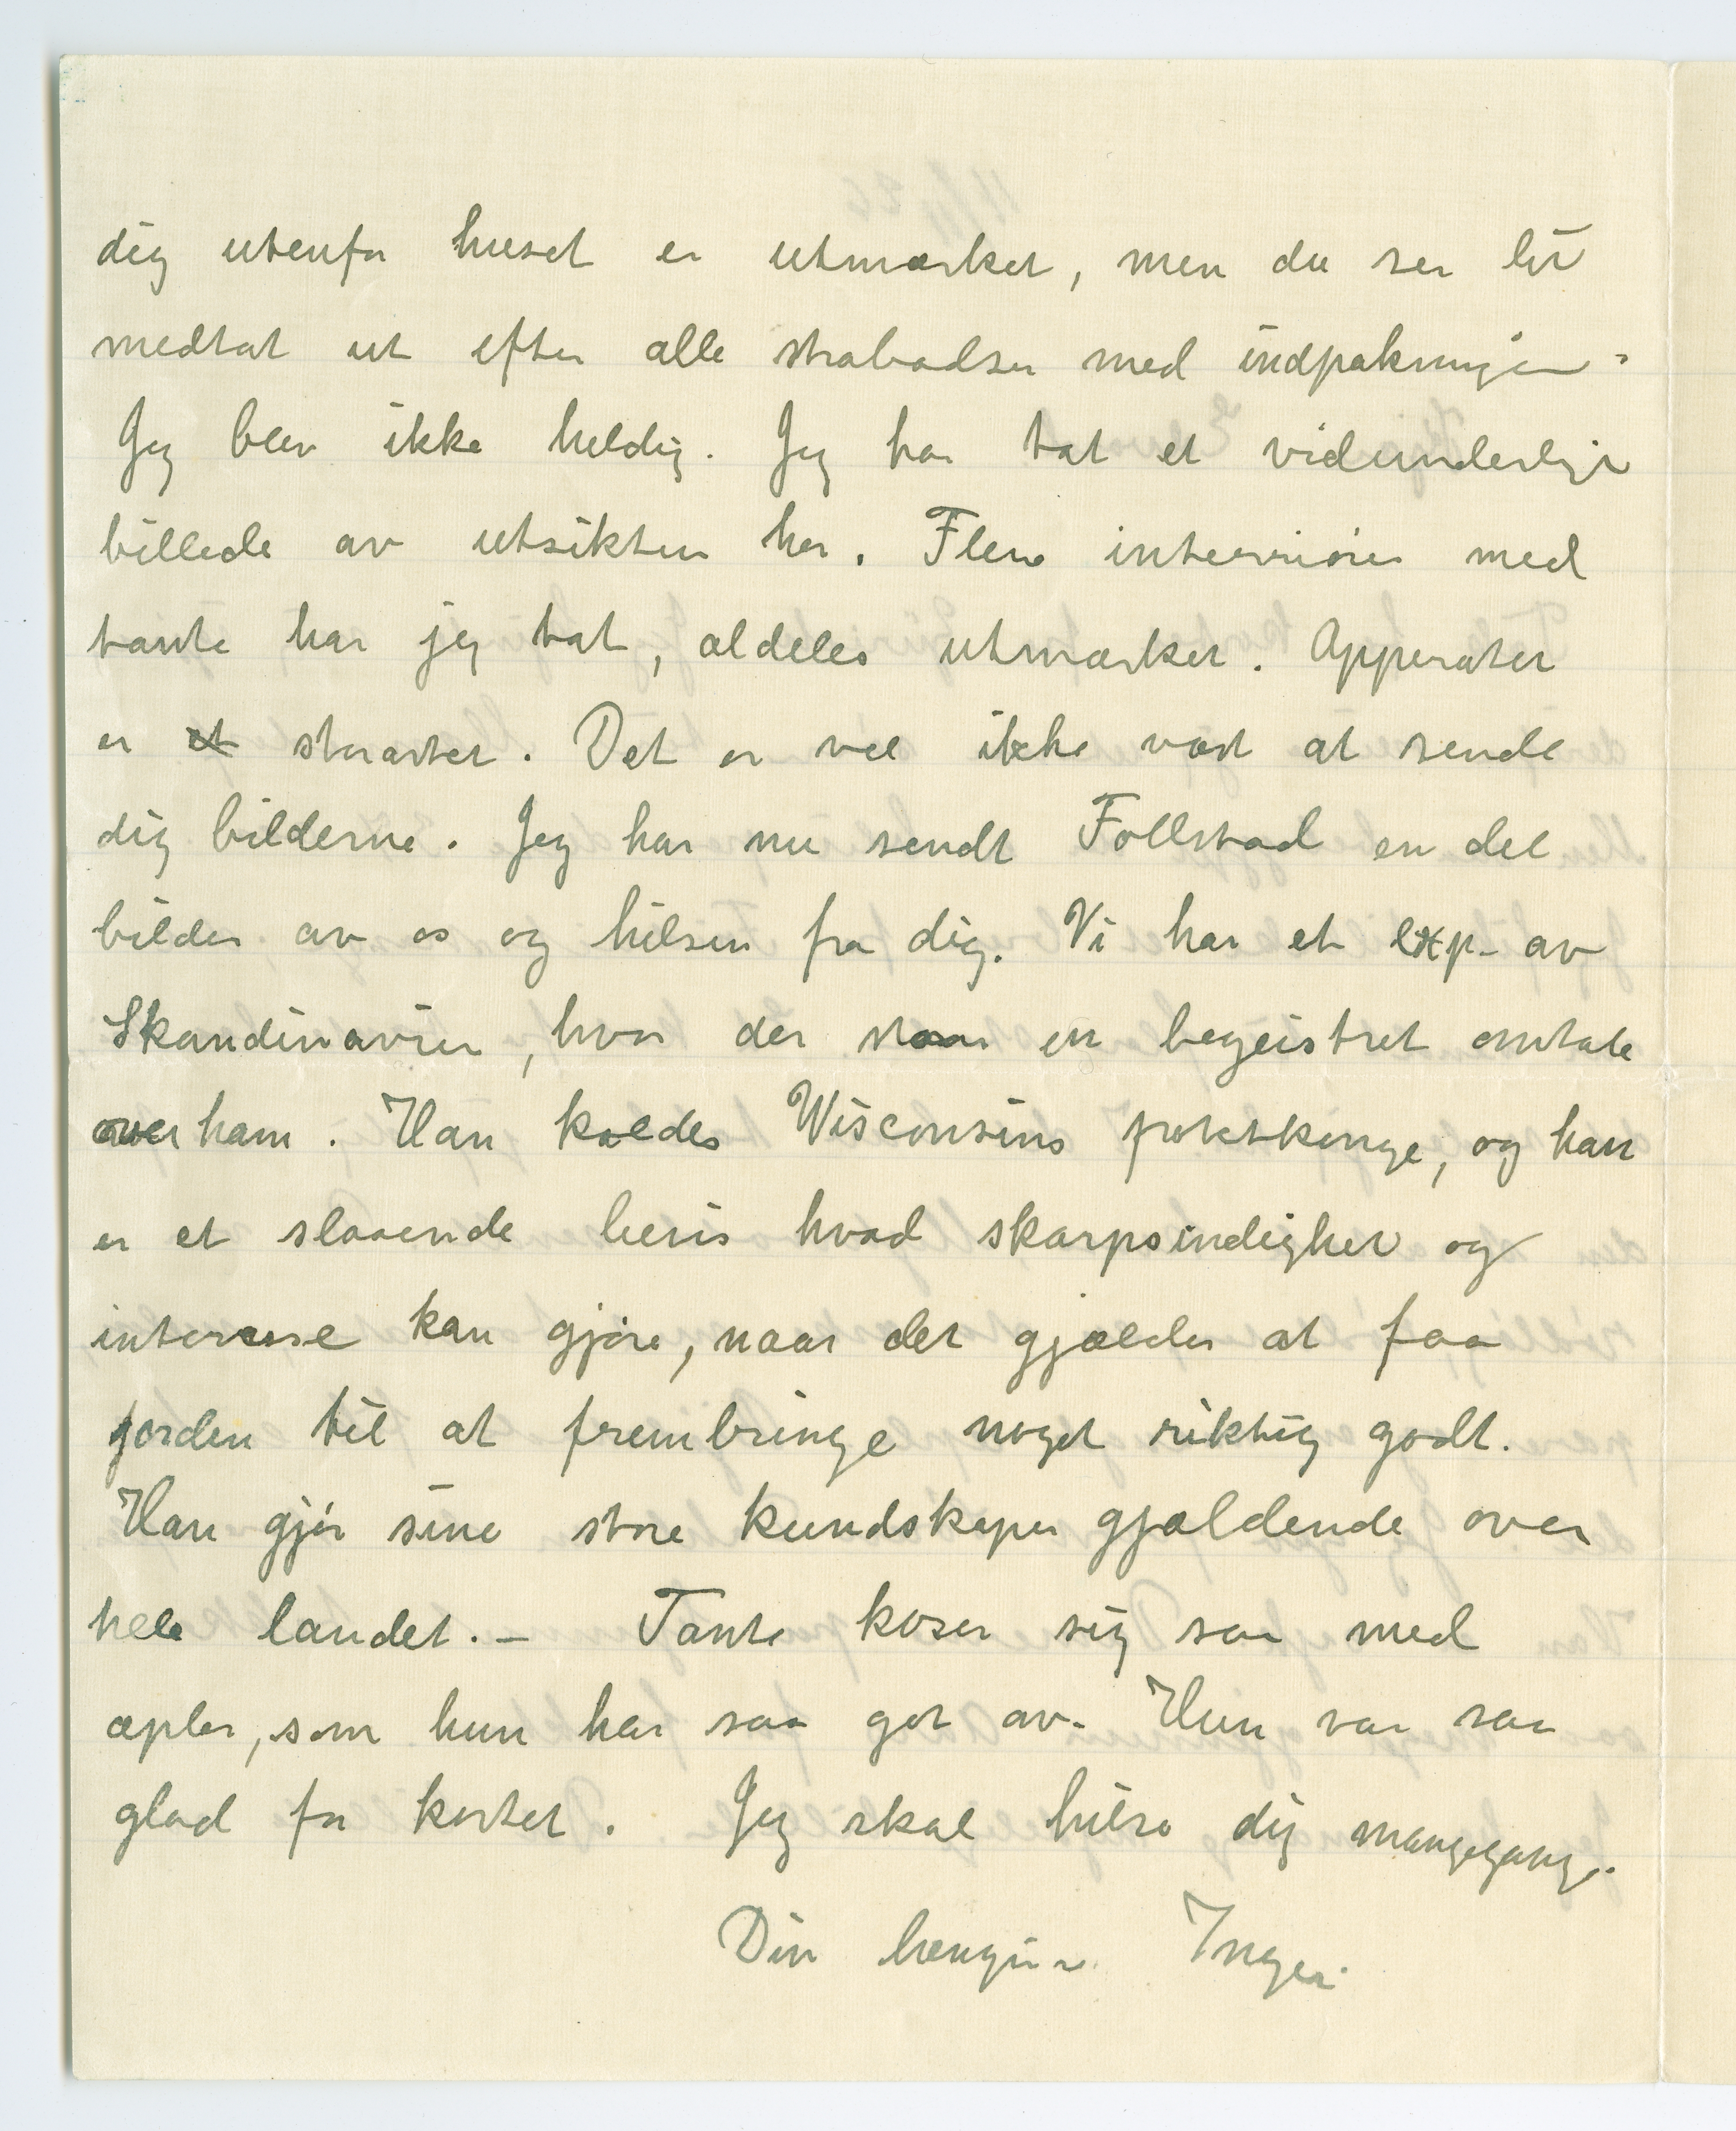 dig utenfor huset er utmærket, men du ser lit
medtat ut efter alle strabadser med indpakningen.
Jeg blev ikke heldig. Jeg har tat et vidunderlig
billede av utsikten her. Flere interriører med
tante har jeg tat, aldeles utmærket. Apperatet
er et storartet. Det er vel ikke værd at sende
dig bilderne. Jeg har nu sendt Follstad en del
bilder av os og hilsen fra dig. Vi har et exp. av
Skandinavien, hvor der staar en begeistret omtale
over ham. Han kaldes Wisconsins potetkonge, og han
er et slaaende bevis hvad skarpsindighet og
interesse kan gjøre, naar det gjælder at faa
jorden til at frembringe noget riktig godt.
Han gjør sine store kundskaper gjældende over
hele landet. - Tante koser sig saa med
æpler, som hun har saa got av. Hun var saa
glad for kortet. Jeg skal hilse dig mangegange.
Din hengivne Inger.